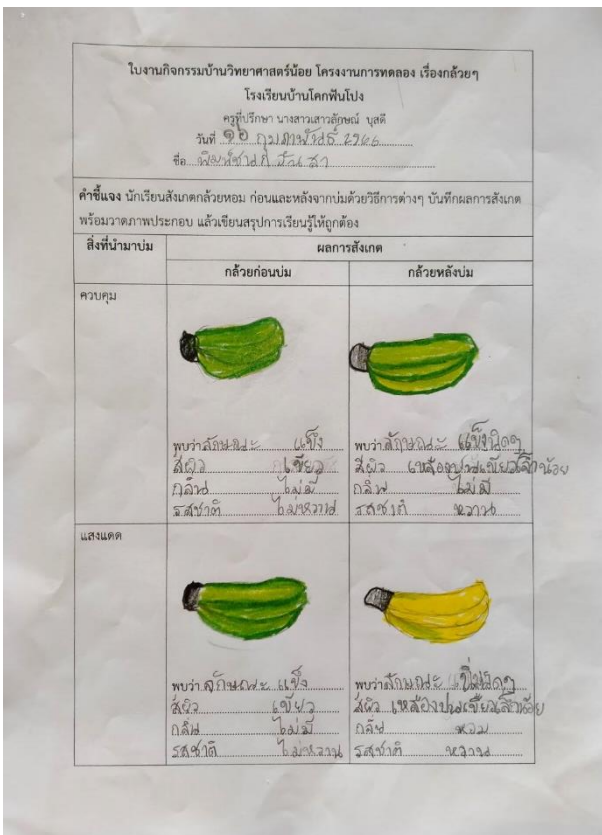 ใบงานกิจกรรมบ้านวิทยาศาสตร์น้อย โครงงานการทดลอง เรื่องกล้วยๆ
โรงเรียนบ้านโคกฟันโปง
ครูที่ปรึกษา นางสาวเสาวลักษณ์ บุสดี
วันที่ ๑๖ กุมภาพันธ์ 2566
ชื่อ
คำชี้แจง นักเรียนสังเกตกล้วยหอม ก่อนและหลังจากบ่มด้วยวิธีการต่างๆ บันทึกผลการสังเกต
พร้อมวาดภาพประกอบ แล้วเขียนสรุปการเรียนรู้ให้ถูกต้อง
สิ่งที่นำมาบ่ม ผลการสังเกต
กล้วยก่อนบ่ม กล้วยหลังบ่ม
ควบคุม
พบว่า ลักษณะ แข็ง
สีผิว เขียว
กลิ่น ไม่มี
รสชาติ ไม่หวาน
พบว่า ลักษณะ แข็งนิดๆ
สีผิว เหลืองปนเขียวเล็กน้อย
กลิ่น ไม่มี
รสชาติ หวาน
แสงแดด
พบว่า ลักษณะ แข็ง
สีผิว เขียว
กลิ่น ไม่มี
รสชาติ ไม่หวาน
พบว่า ลักษณะ
สีผิว เหลืองปนเขียวเล็กน้อย
กลิ่น หอม
รสชาติ หวาน